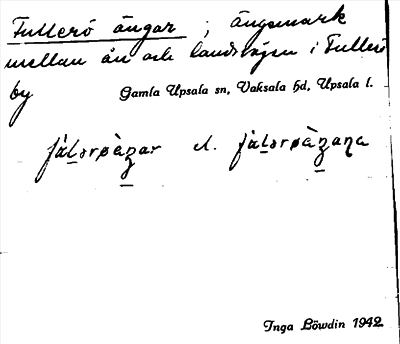 Fullerö ängar ; ängsmark
mellan ån och landsvägen i Fullerö
by
Gamla Upsala sn, Vaksala hd, Upsala l.
el.
Inga Löwdin 1942